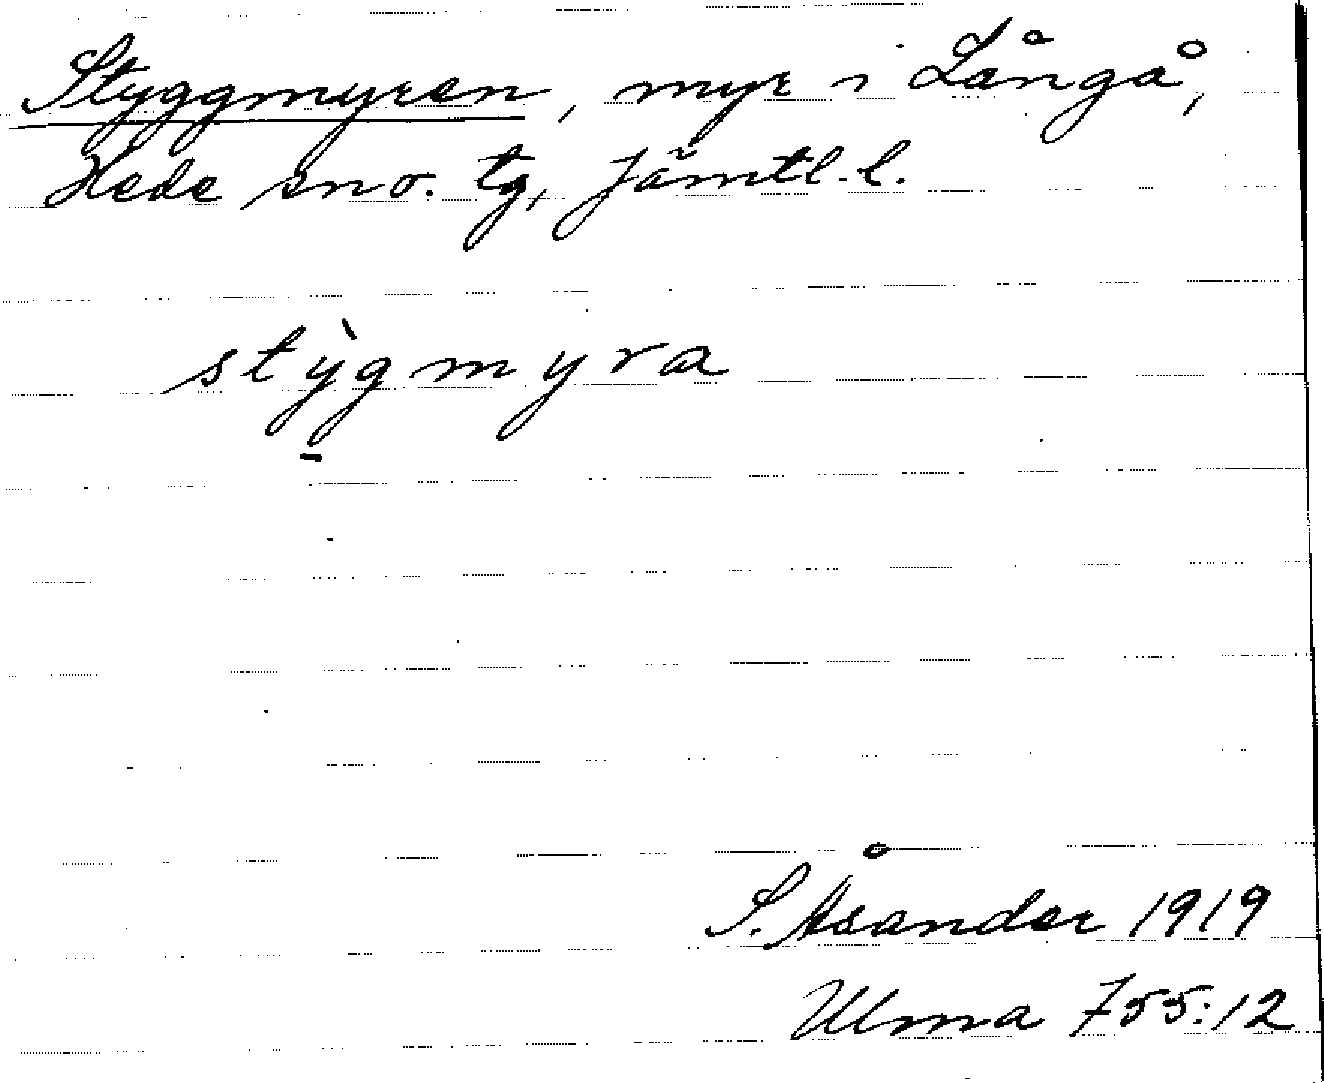 Styggmyren, myr i Långå,
Hede sn o. tg, Jämtl. l.
stỳg̠myra
S. Åsander 1919
Ulma 755:12